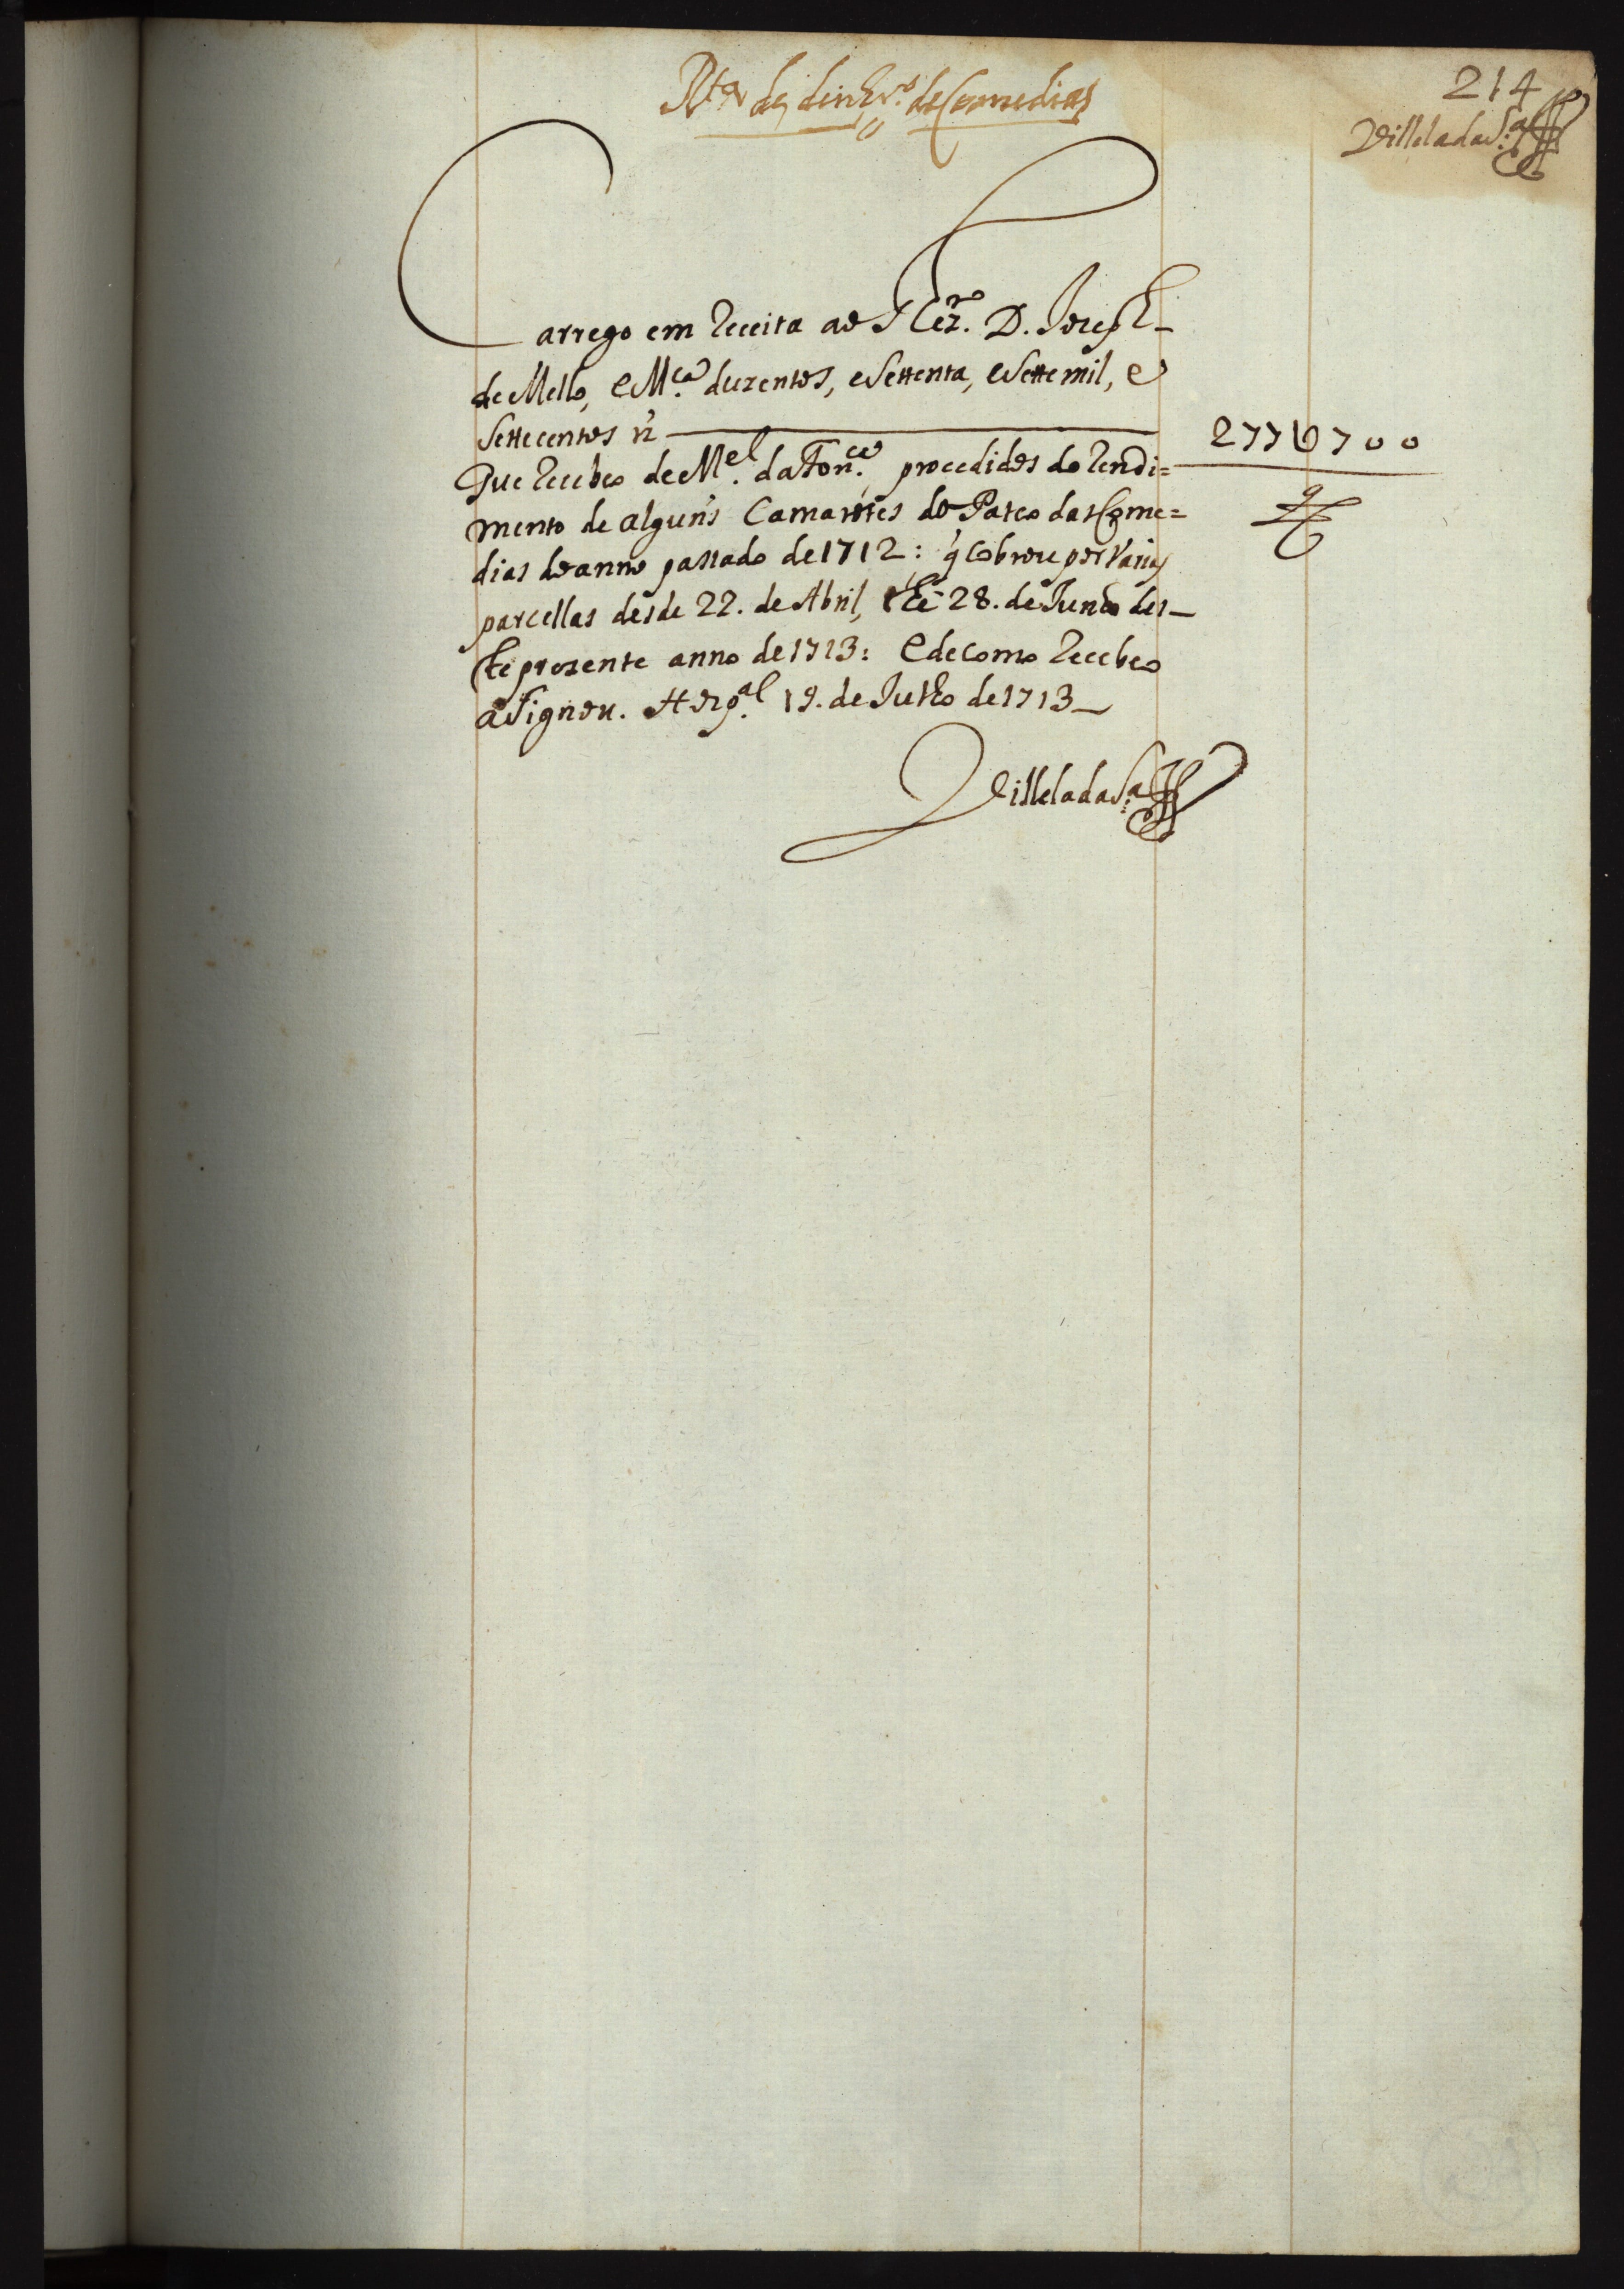 Rta de dinhros de Comedias
214
Villela da Sa
Carrego em Receita ao S Thezro. D. Joseph
de Mello, e Mca. duzentos, e settenta, e sette mil, e
settecentos rz
277U700
Que Recebeo de Mel. da Fonca. procedidos do Rendi=
mento de alguns Camarotes do Pateo das Come=
dias do anno passado de 1712: q̃ cobrou por varias
parcellas desde 22. de Abril, the 28. de Junho des_
te prezente anno de 1713: E de como Recebeo
asignou. Hospal. 19. de Julho de 1713_
Villela da Sa